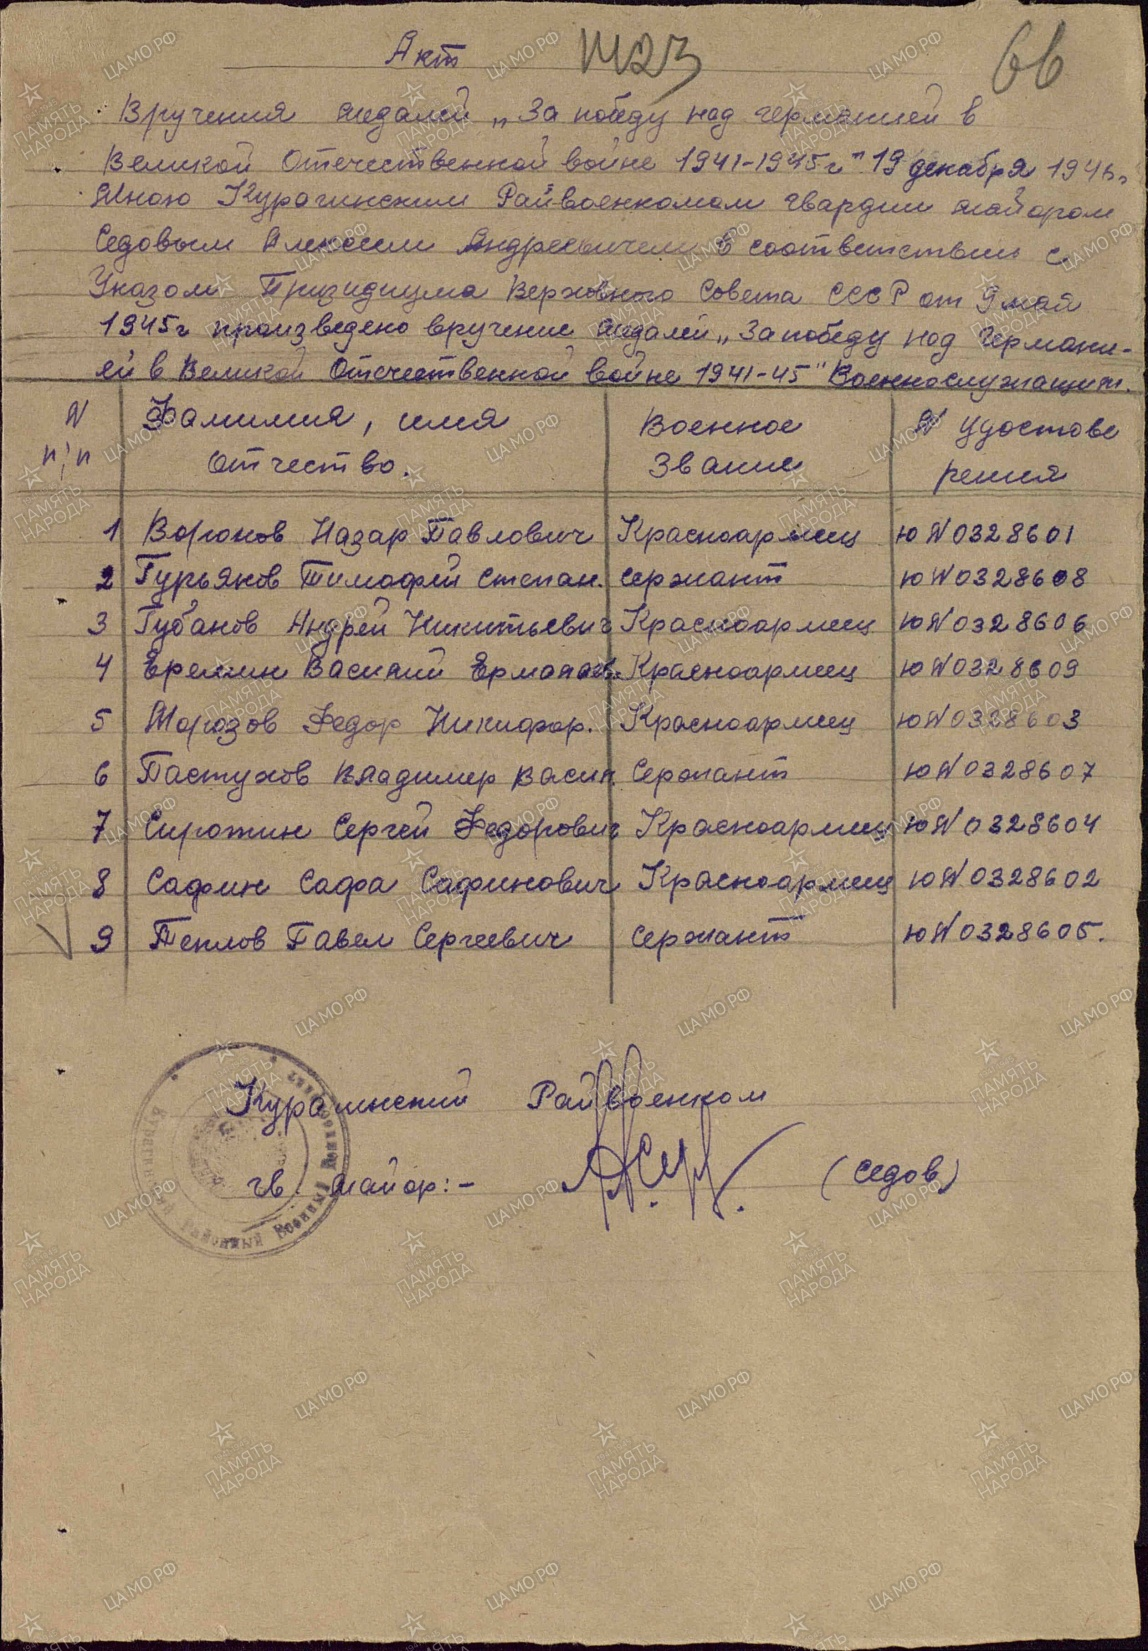 Акт
Вручения медалей „За победу над германией в
Великой Отечественной войне 1941-1945г" 19 декабря 194 г.
Мною Курагинским Райвоенкомом гвардии майором
Седовым Алексеем Андреевичем в соответствии с
Указом Призидиума Верховного Совета СССР от 9 мая
1945г произведено вручение медалей „За победу над Германи-
ей в Великой Отечественной войне 1941-45" Военнослужащим.
N п/п Фамилия, имя Отчество. Военное Звание N Удостове рения
1 Воронов Назар Павлович Красноармеец Ю N 0328601
2 Гурьянов Тимофей Степан. Сержант Ю N 0328608
3 Губанов Андрей Никитьевич Красноармеец Ю N 0328606
4 Еремин Василий Красноармеец Ю N 0328609
5 Морозов Федор Никифор. Красноармеец Ю N 0328603
6 Пастухов Владимер Васил. Сержант Ю N 0328607
7 Сиротин Сергей Федорович Красноармеец Ю N 0328604
8 Сафин Сафа Сафинович Красноармеец Ю N 0328602
9 Теплов Павел Сергеевич Сержант Ю N 0328605.
Курагинский Райвоенком
гв. майор:- (Седов)
ПАМЯТЬ НАРОДА
ЦАМО РФ